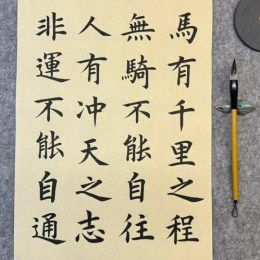 馬有千里之程
無騎不能自往
人有冲天之志
非運不能自通